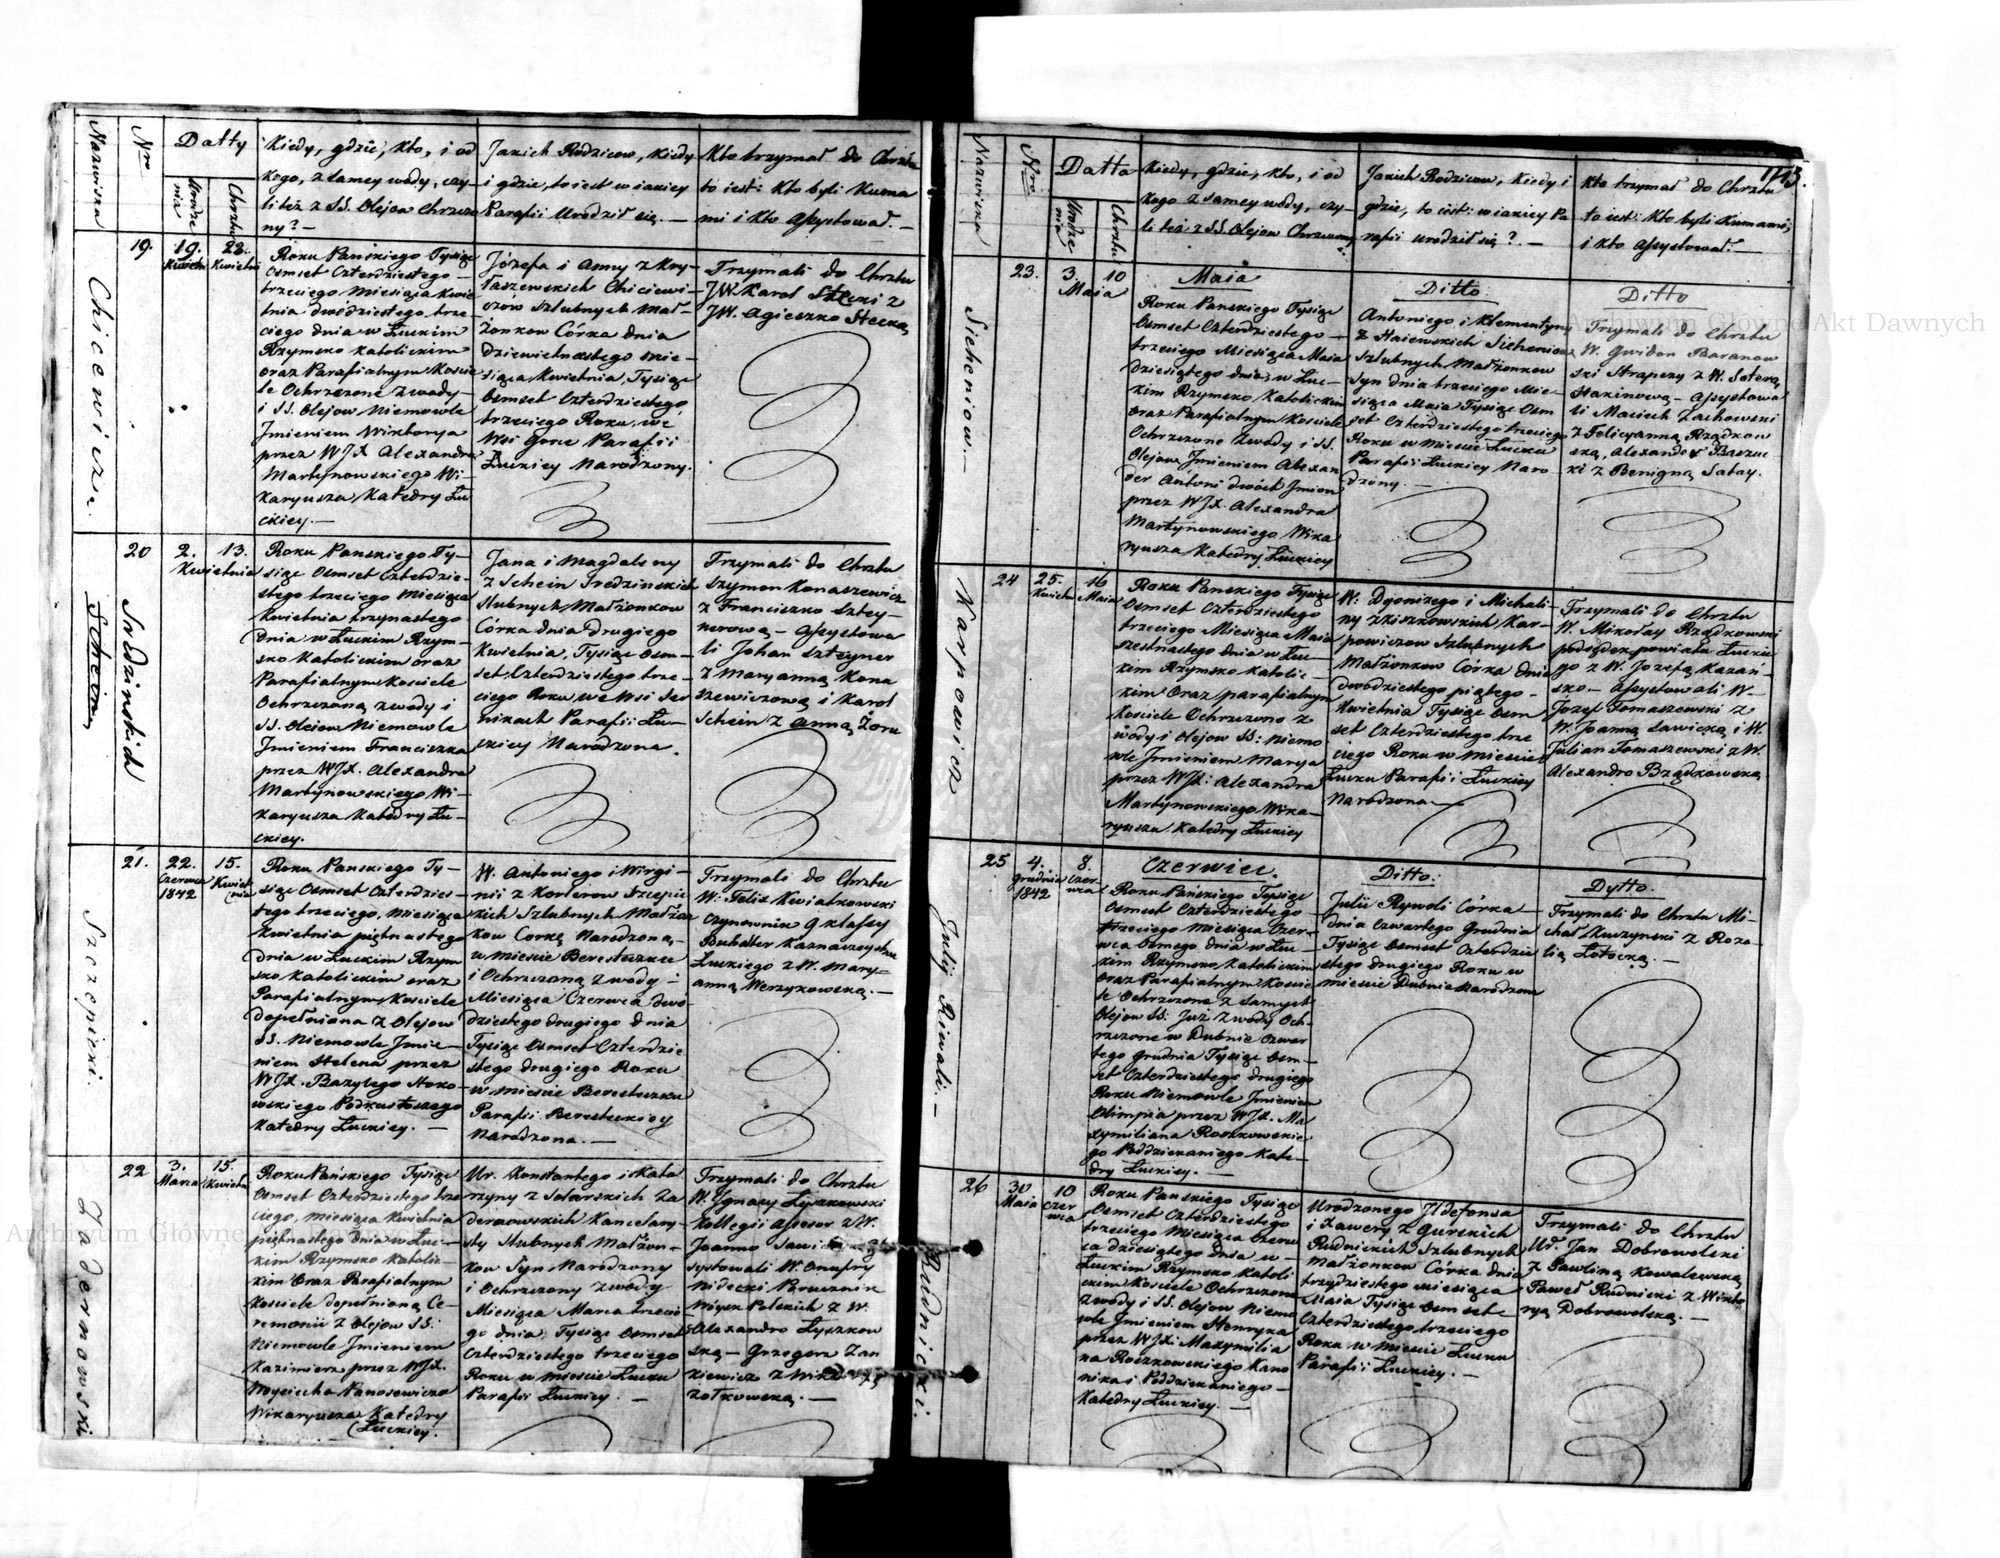 Nazwiska
Nro
Datty
Urodze
nia
Chrztu
Kiedy, gdzie, kto, i od
kogo, z samey wody, czy
li też z SS. Olejow Chrzczo
ny? —
Jakich Rodzicow, kiedy
i gdzie, to iest w iakiey
Parafii Urodził się. —
Kto trzymał do Chrztu
to iest: Kto byli Kuma
mi i kto assystował. —
19.
19.
Kwietn
23.
Kwietni
Roku Pańskiego Tysiąc
Osmset Czterdziestego —
trzeciego Miesiąca Kwie
tnia dwódziestego trze
ciego dnia w Łuckim
Rzymsko Katolickim
oraz Parafialnym Koscie
le Ochrzczone z wody —
i SS. Olejow Niemowle
Jmieniem Wiktorya
przez WJX Alexandra
Martynowskiego Wi-
karyusza Katedry Łu
ckiey. —
Józefa i Anny z Kry-
szlubnych Mał-
żonkow Córka dnia
dziewietnastego mie-
siąca Kwietnia, Tysiąc
Osmset Czterdziestego
trzeciego Roku, we
Wsi Parafii
Łuckiey Narodzony.
Trzymali do Chrztu
JW. Karol Stecki z
JW. Agieszko Stecką
20
2.
13.
Kwietnia
Schein
Sredzinskich
Roku Panskiego Ty-
siąc Osmset Czterdzie-
stego trzeciego Miesiąca
Kwietnia trzynastego
dnia w Łuckim Rzym-
sko Katolickim oraz
Parafialnym Kosciele
Ochrzczoną z wody i
SS. Olejow Niemowle
Jmieniem Franciszka
przez WJX. Alexandra
Martynowskiego Wi-
karyusza Katedry Łu-
ckiey.
Jana i Magdaleny
z Schein Sredzinskich
Slubnych Małżonkow
Córka dnia Drugiego
Kwietnia, Tysiąc Osm-
set Czterdziestego trze-
ciego Roku we Wsi Se-
nikach Parafii Łu-
ckiey Narodzona.
Trzymali do Chrztu
Szymon Konaszewicz
z Franciszko Sztey-
nerową — Assystowa
li Johan Szteyner
z Maryanną Kona
szewiczową i Karol
Schein z Anną Żoru
21.
22.
Czerwca
1842
15.
Kwiet
nia
Roku Panskiego Ty-
siąc Osmset Czterdzies-
tego trzeciego, Miesiąca
Kwietnia piętnastego
dnia w Łuckim Rzym
sko Katolickim oraz
Parafialnym Kosciele
dopełniana z Olejow
SS. Niemowle Jmie-
niem Helena przez
WJX. Bazylego
Katedry Łuckiey. —
W. Antoniego i Wirgi-
nii z
Szlubnych Małżon
kow Corką Narodzoną
w miescie Beresteczku
i Ochrzczoną z wody —
Miesiąca Czerwca dwo
dziestego drugiego dnia
Tysiąc Osmset Czterdzie
stego drugiego Roku
w miescie Beresteczku
Parafii Beresteckiey
Narodzona. —
Trzymali do Chrztu
W: Felix Kwiatkowski
Czynownik 9 klassy
Buhalter Kaznaczeystwa
Łuckiego z W. Mary-
anną Werzykowską. —
22
3.
Marca
15.
Kwietn
Roku Pańskiego Tysiąc
Osmset Czterdziestego trze
ciego, miesiąca Kwietnia
piętnastego dnia w Łuc-
kim Rzymsko Katolic-
kim Oraz Parafialnym
Kosciele dopełnioną Ce-
remonii z Olejow SS:
Niemowle Jmieniem
Kazimierz przez WJX.
Woyciecha Panosewicza
Wikaryusza Katedry
Łuckiey.
Ur. Konstantego i Kata
rzyny z
sty Slubnych Małżon-
kow Syn Narodzony
i Ochrzczony z wody
Miesiąca Marca trzeci
go dnia, Tysiąc Osmset
Czterdziestego trzeciego
Roku w miescie Łucku
Parafii Łuckiey. —
Trzymali do Chrztu
W. Ignacy Łyszkowski
Kollegii Assesor z W.
Joanno
systowali W. Onufry
Nidecki Porucznik
Woysk Polskich z W.
Alexandro Łyszkow
ską — Grzegorz Zan
kiewicz z
żołkowską. —
Szczepicki.
Zadernowski
1713.
Nazwiska
Nro
Datta
Urodze
nia
Chrztu
Kiedy, gdzie, kto, i od
kogo z samey wody, czy-
li też z SS. Olejow Chrzczony
Jakich Rodzicow, Kiedy i
gdzie, to iest: w iakiey Pa
rafii urodził się? —
Kto trzymał do Chrztu
to iest: Kto byli Kumami,
i kto Assystował. —
23.
3.
10
Maia
Sicheniow. —
Maia
Roku Panskiego Tysiąc
Osmset Czterdziestego —
trzeciego Miesiąca Maia
dziesiątego dnia, w Łuc-
kim Rzymsko Katolickim
oraz Parafialnym Kosciele
Ochrzczone z wody i SS.
Olejow, Jmieniem Alexan
der Antoni dwóch Jmion
przez WJX. Alexandra
Martynowskiego Wika
ryusza Katedry Łuckiey
Ditto.
Antoniego i Klementyny
z Haiewskich Sicheniow
Szlubnych Małżonkow
Syn dnia trzeciego Mie-
siąca Maia Tysiąc Osm
set Czterdziestego trzeciego
Roku w miescie Łucku
Parafii Łuckiey Naro
dzony. —
Ditto
Trzymali do Chrztu
W. Gwidon Baranow
ski Strapczy z W. Soterą
— Assystowa
li Maciech Zachowski
z Felicyanną Rządkow
ską, Alexander
ki z Benigną Sabay.
24
25.
Kwietn
16
Maia
Karpowicz
Roku Panskiego Tysiąc
Osmset Czterdziestego
trzeciego Miesiąca Maia
szesnastego dnia w Łuc-
kim Rzymsko Katolic-
kim Oraz parafialnym
Kosciele Ochrzczono z
wody i Olejow SS: Niemo
wle Jmieniem Marya
przez WJX: Alexandra
Martynowskiego Wika-
ryusza Katedry Łuckiey
W: Dyonizego i Michali-
ny z Kar-
powiczow Szlubnych
Małżonkow Córka dnia
dwodziestego piątego —
Kwietnia Tysiąc Osm
set Czterdziestego trze
ciego Roku w miescie
Łucku Parafii Łuckiey
Narodzona —
Trzymali do Chrztu
W. Mikołay Rządkowski
podsędek powiatu Łuckie
go z W. Jozefą Kazań-
sko — Assystowali W.
Jozef Tomaszewski z
W. Joanną Sawicką i W.
Julian Tomaszewski z W.
Alexandro Rządkowską
25
4.
grudnia
1842
8.
Czer
wca
Julij Riwali. —
Czerwiec.
Roku Pańskiego Tysiąc
Osmset Czterdziestego —
trzeciego miesiąca Czer-
wca Osmego dnia w Łuc-
kim Rzymsko Katolickim
oraz Parafialnym Koscie
le Ochrzczone z samych
Olejow SS: Już z wody Och-
rzczone w Dubnie Czwar-
tego Grudnia Tysiąc Osm-
set Czterdziestego drugiego
Roku Niemowle Jmieniem
Olimpia przez WJX. Ma
xymiliana Roszkowskie
go Poddziekaniego Kate-
dry Łuckiey. —
Ditto:
Julii Rywoli Córka —
dnia Czwartego Grudnia
Tysiąc Osmset Czterdzie
stego drugiego Roku w
miescie Dubnie Narodzona
Dytto.
Trzymali do Chrztu Mi-
chał Kuczynski z Roza-
lią Łotocką. —
26
30
Maia
10
Czer
wca
Rudnicki.
Roku Panskiego Tysiąc
Osmset Czterdziestego
trzeciego Miesiąca Czerw
ca dziesiątego dnia w —
Łuckim Rzymsko Katoli
ckim Kosciele Ochrzczone
z wody i SS. Olejow Niemo
wle Jmieniem Henryka
przez WJX: Maxymilia
na Roszkowskiego Kano
nika i Poddziekaniego —
Katedry Łuckiey. —
Urodzonego Jldefonsa
i Xawery z Gurskich
Rudnickich Szlubnych
Małżonkow Córka dnia
trzydziestego miesiąca
Maia Tysiąc Osmset
Czterdziestego trzeciego
Roku w miescie Łucku
Parafii Łuckiey. —
Trzymali do Chrztu
Ur. Jan Dobrowolski
z Pawliną Kowalewską
Paweł Rudnicki z Wikto
ryą Dobrowolską. —
Archiwum Główne Akt Dawnych
Archiwum Główne